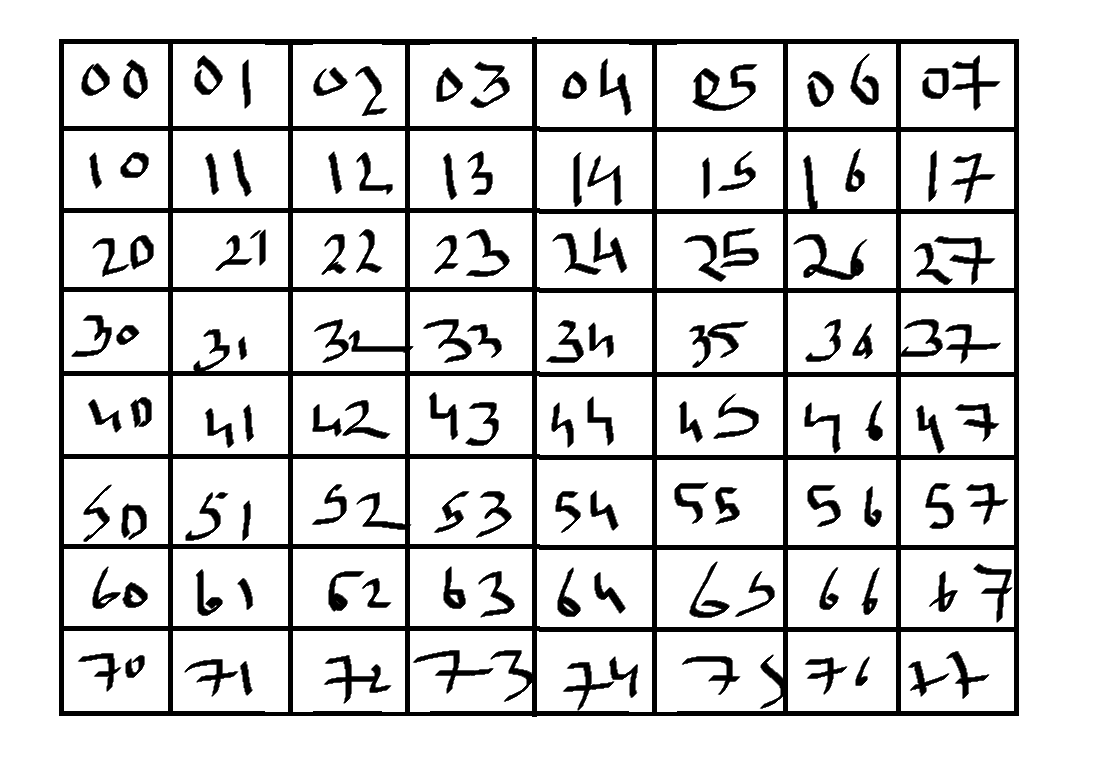 00 01 02 03 04 05 06 07
10 11 12 13 14 15 16 17
20 21 22 23 24 25 26 27
30 31 32 33 34 35 36 37
40 41 42 43 44 45 46 47
50 51 52 53 54 55 56 57
60 61 62 63 64 65 66 67
70 71 72 73 74 75 76 77